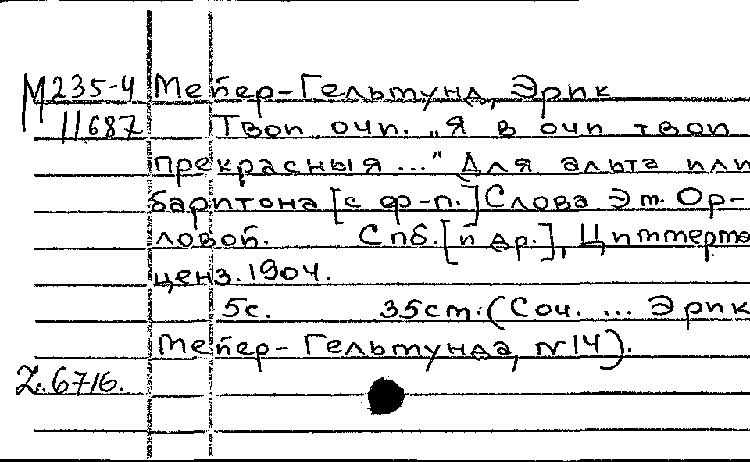 М 235-4 Мейер-Гельмунд, Эрик
11687 Твои очи. „Я в очи твои
прекрасныя...“ Для альта или
баритона [с ф-п.] Слова Эм. Ор-
ловой. Спб. [и др.], Циммерма
ценз. 1904.
5с. 35см. (Соч. ... Эрик
Мейер-Гельмунда, №14).
Z. 6716.